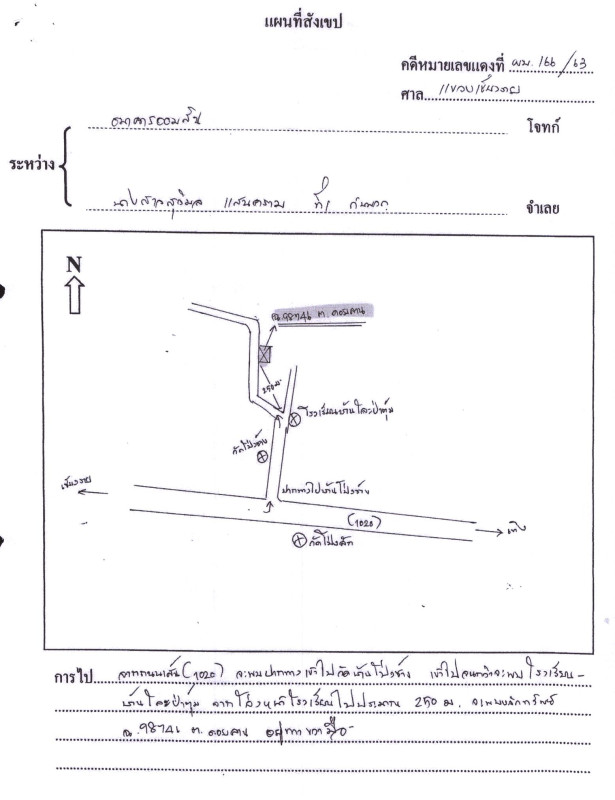 แผนที่สังเขป
คดีหมายเลขแดงที่ ผบ. 166/63
ศาล แขวงเชียงราย
ธนาคารออมสิน โจทก์
ระหว่าง
นางสาวสุวิมล แสนคราม ที่1 กับพวก จำเลย
N
ฉ.98746 ต. ดอยลาน
250 ม.
โรงเรียนบ้านโคกป่าตุ้ม
วัดโป่งช้าง
เชียงราย
ปากทางไปบ้านโป่งช้าง
(1020)
เทิง
วัดโป่งสัก
การไป จากถนนเส้น (1020) จะพบปากทางเข้าไปวัดบ้านโป่งช้าง เข้าไปจนกว่าจะพบโรงเรียน-
บ้าน จากโค้งหน้าโรงเรียนไปประมาณ 250 ม. จะพบหลักทรัพย์
ฉ.98746 ต. ดอยลาน อยู่ทางขวามือ